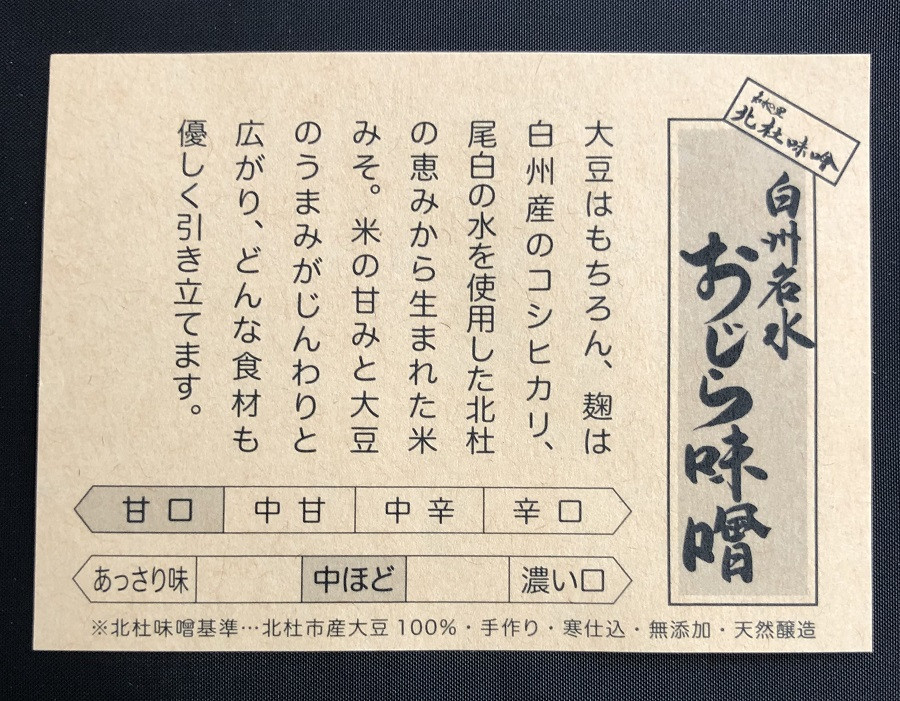 北杜味噌
白州名水
おじら味噌
大豆はもちろん、麹は
白州産のコシヒカリ、
尾白の水を使用した北杜
の恵みから生まれた米
みそ。米の甘みと大豆
のうまみがじんわりと
広がり、どんな食材も
優しく引き立てます。
甘口 中甘 中辛 辛口
あっさり味 中ほど 濃い口
※北杜味噌基準…北杜市産大豆100%・手作り・寒仕込・無添加・天然醸造